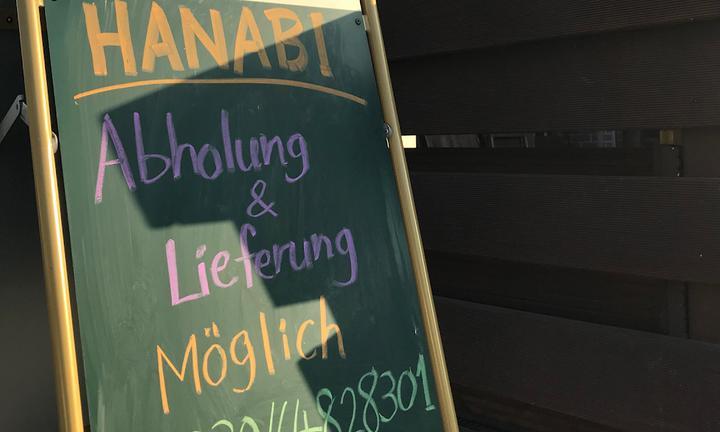 HANABI
Abholung
&
Lieferung
Möglich
030/44828301